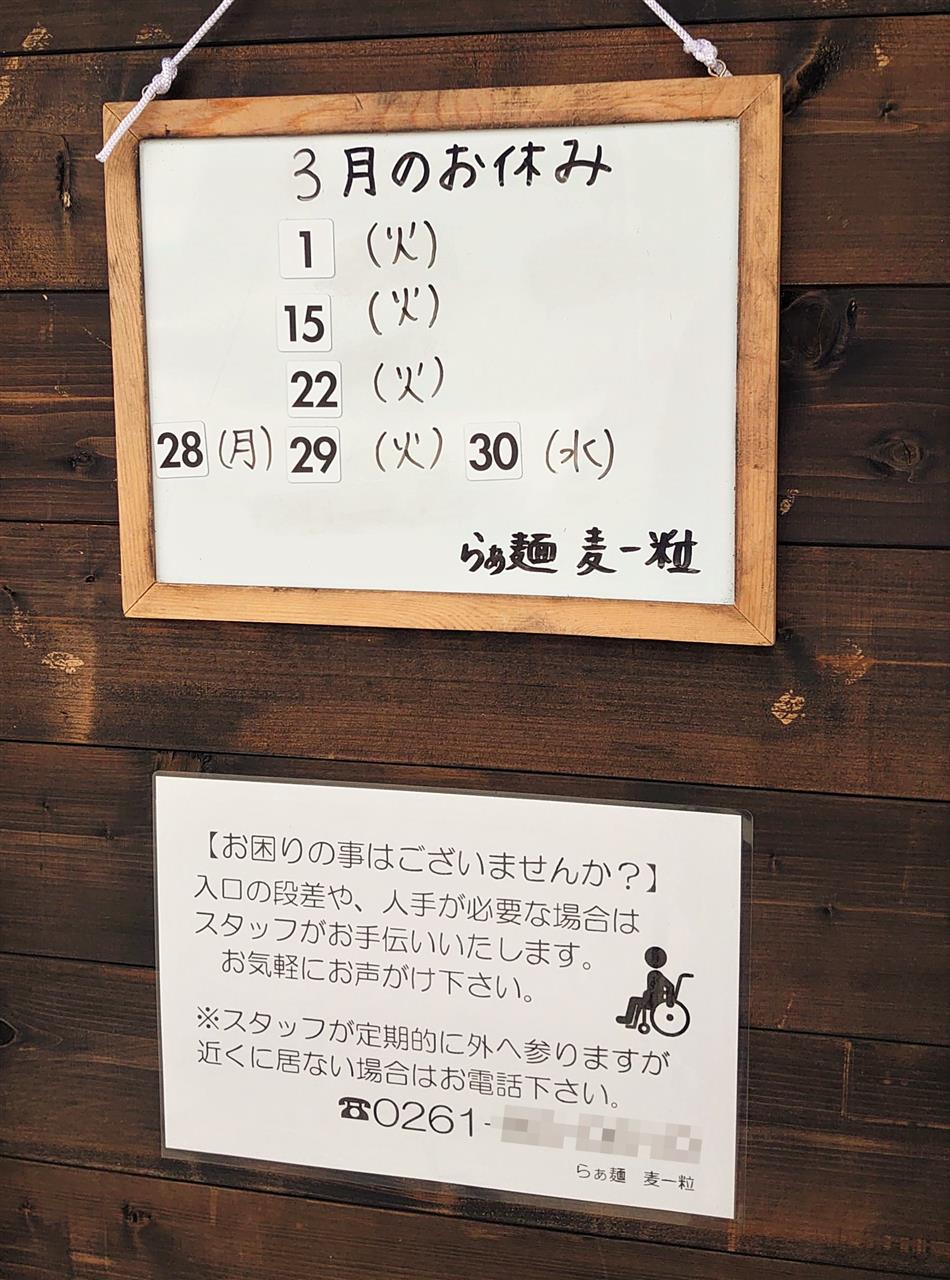 3月のお休み
1 (火)
15 (火)
22 (火)
28 (月) 29 (火) 30 (水)
らぁ麺 麦一粒
【お困りの事はございませんか？】
入口の段差や、人手が必要な場合は
スタッフがお手伝いいたします。
お気軽にお声がけ下さい。
※スタッフが定期的に外へ参りますが
近くに居ない場合はお電話下さい。
☎0261-
らぁ麺 麦一粒